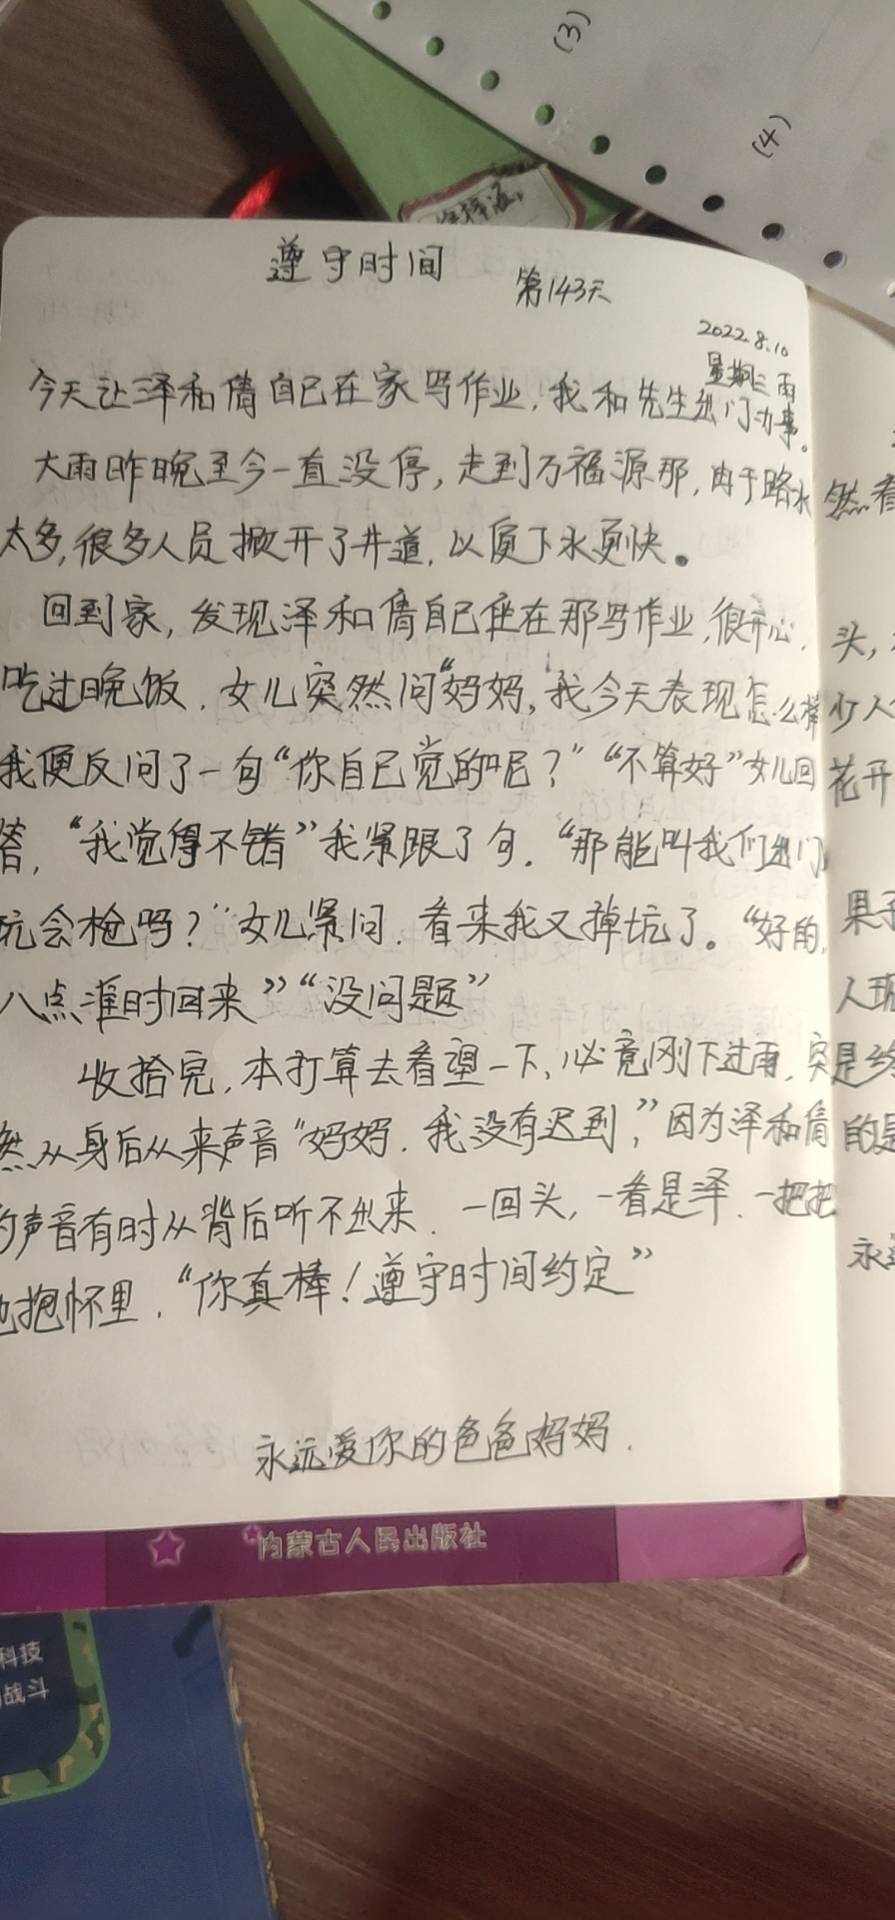 (3)
(4)
遵守时间
第143天
2022.8.10
星期三 雨
今天让泽和倩自己在家写作业,我和先生出门办事。
大雨昨晚至今一直没停,走到万福源那,由于路水
太多,很多人员掀开了井道,以便下水更快。
回到家,发现泽和倩自己坐在那写作业,很开心.
吃过晚饭.女儿突然问"妈妈,我今天表现怎么样
我便反问了一句"你自己觉的呢?""不算好"女儿回
答,"我觉得不错"我紧跟了句."那能叫我们出门
玩会枪吗?"女儿紧问.看来我又掉坑了。"好的,
八点准时回来""没问题"
收拾完,本打算去看望一下,必竟刚下过雨.突
然从身后从来声音"妈妈.我没有迟到,"因为泽和倩
的声音有时从背后听不出来.一回头,一看是泽.一把把
他抱怀里."你真棒!遵守时间约定"
永远爱你的爸爸妈妈.
然看
头,
少人
花开
果子
人现
是
的是
永远
内蒙古人民出版社
科技
战斗